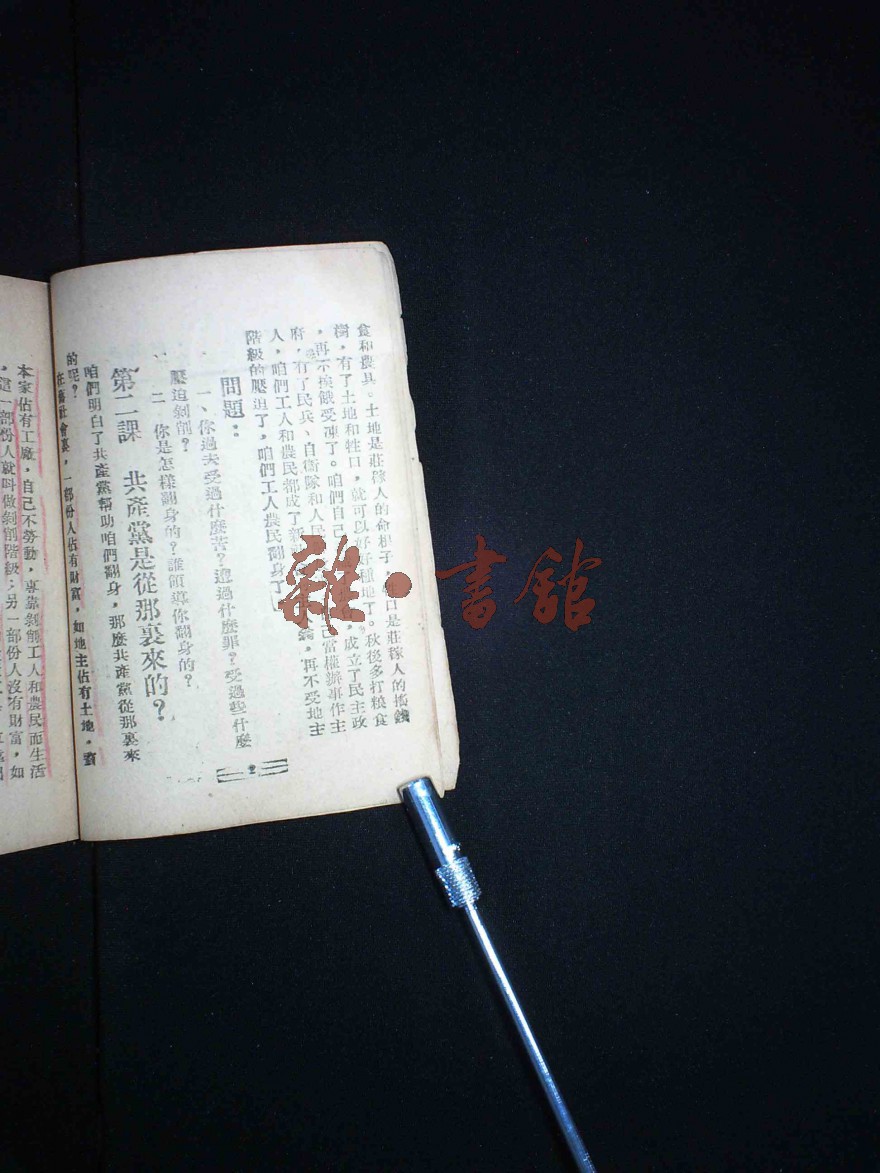 食和農具。土地是莊稼人的命根子，牲口是莊稼人的搖錢
樹，有了土地和牲口，就可以好好種地了。秋後多打糧食
，再不挨餓受凍了。咱們自己 成立了民主政
府，有了民兵、自衛隊和人民 己當權辦事作主
人，咱們工人和農民都成了新 ，再不受地主
階級的壓迫了，咱們工人農民翻身了
問題：
一、你過去受過什麼苦？遭過什麼罪？受過些什麼
壓迫剝削？
二、你是怎樣翻身的？誰領導你翻身的？
第二課 共產黨是從那裏來的？
咱們明白了共產黨幫助咱們翻身，那麼共產黨從那裏來
的呢？
在舊社會裏，一部份人佔有財富，如地主佔有土地，資
2
本家佔有工廠，自己不勞動，專靠剝削工人和農民而生活
，這一部份人就叫做剝削階級；另一部份人沒有財富，如
雜·書館